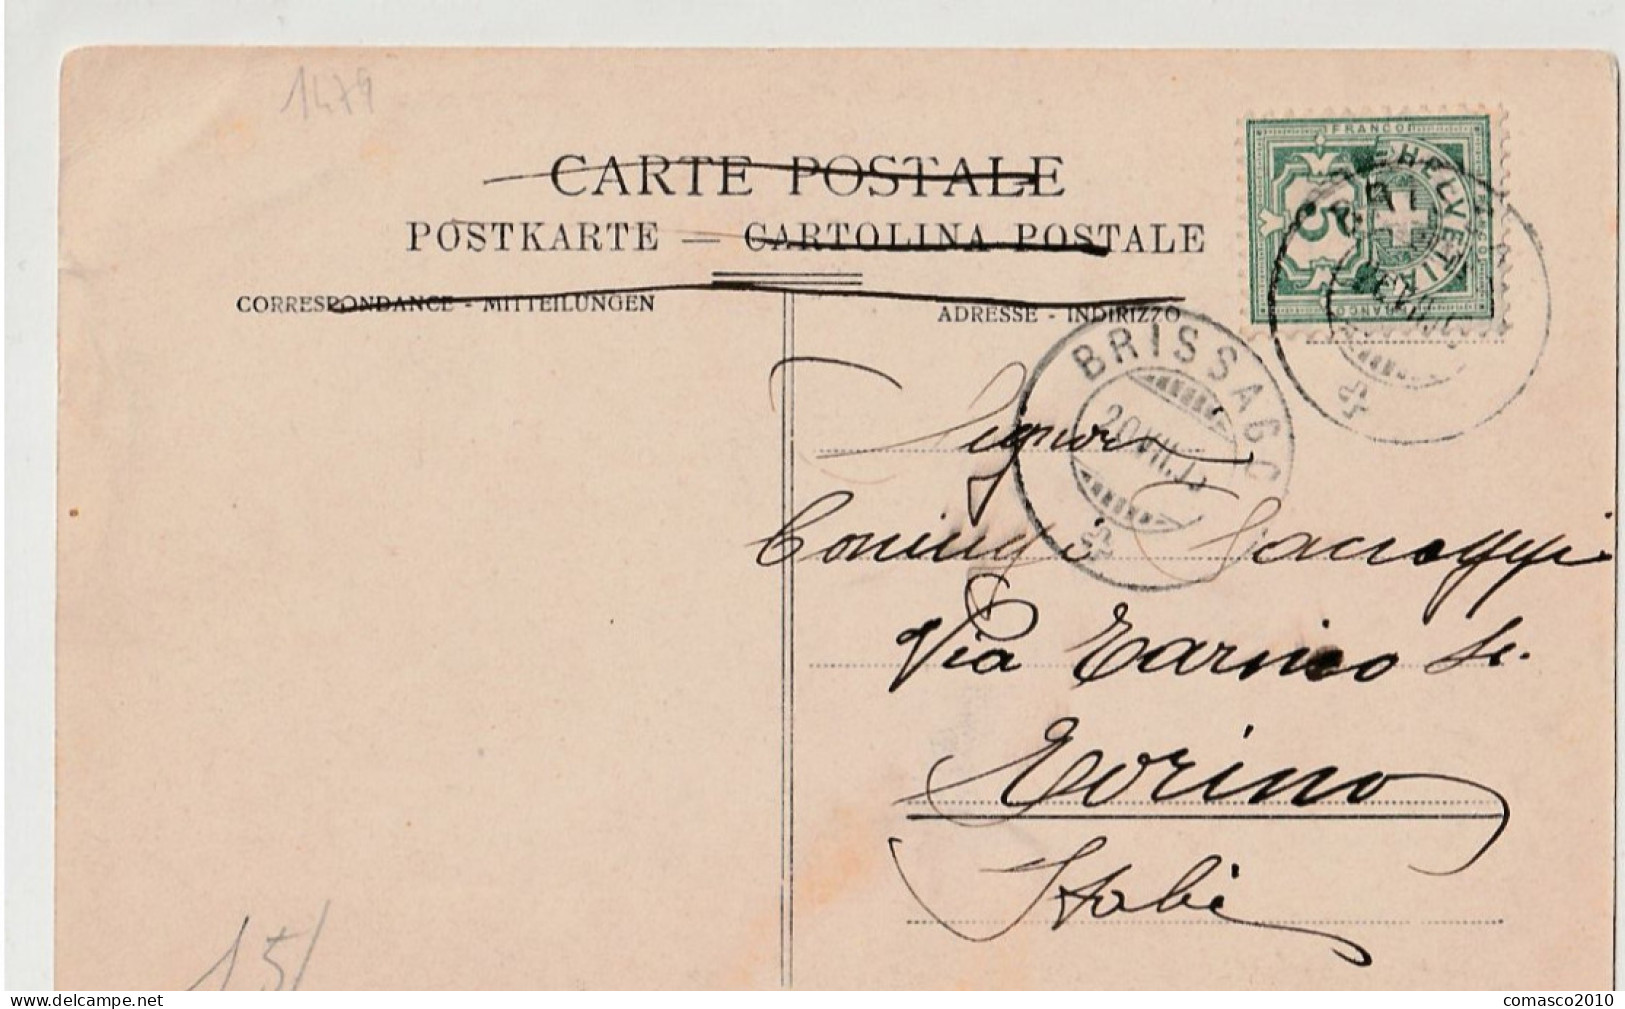 1479
CARTE POSTALE
POSTKARTE — CARTOLINA POSTALE
CORRESPONDANCE - MITTEILUNGEN
ADRESSE - INDIRIZZO
FRANCO
HELVETIA
5
FRANCO
BRISSAGO
20.VII.
Signor
Via
Torino
Italie
15/
delcampe.net
comasco2010